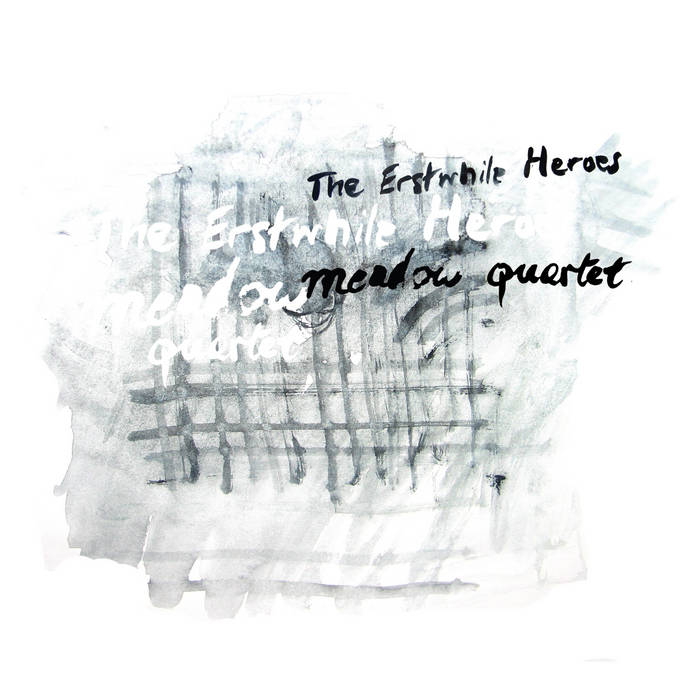 The Erstwhile Heroes
meadow quartet
The Erstwhile Heroes
meadow
quartet